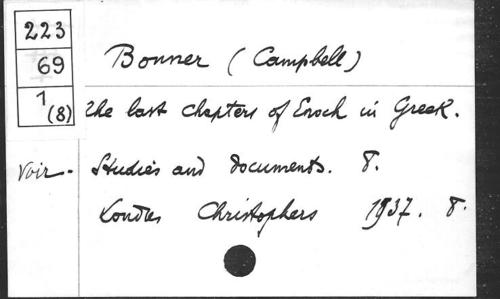 223
69
1
(8)
Bonner (Campbell)
The last chapters of Enoch in Greek.
Voir - Studies and documents. 8.
Londres Christophers 1937. 8.